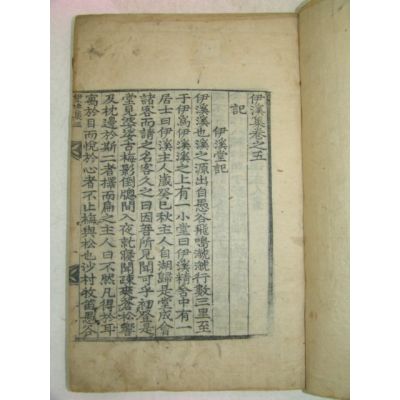 伊溪集卷之五
記
伊溪堂記
伊溪溪也溪之源出自愚谷飛鳴㶁㶁行數三里至
于伊爲伊溪溪之上有一小堂曰伊溪精舍中有一
居士曰伊溪主人歲癸巳秋主人自湖歸是堂成會
諸客而請之名客久之曰因昔所見聞可乎初登是
堂見婆娑古梅影倒牕間入夜就寢聞疎來蒼松響
及枕邊於斯二者擇而扁之主人曰不然凡得於耳
寓於目而悅於心者不止梅與松也沙村牧笛愚谷
伊溪集 五